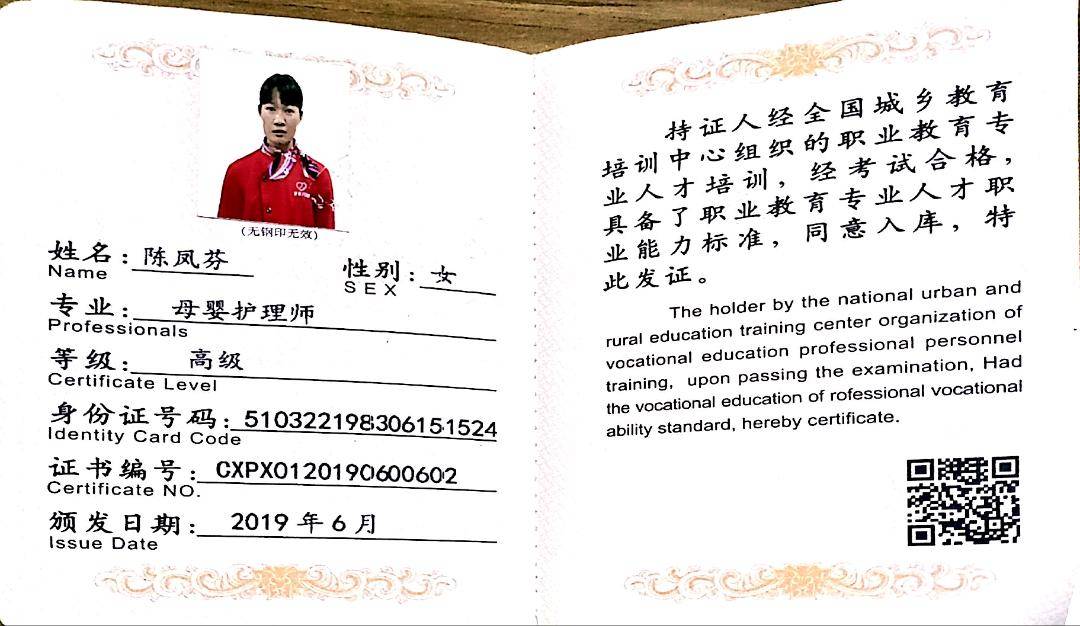 (无钢印无效)
姓名：陈凤芬
Name
性别：女
SEX
专业：母婴护理师
Professionals
等级：高级
Certificate Level
身份证号码：510322198306151524
Identity Card Code
证书编号：CXPX0120190600602
Certificate NO.
颁发日期：2019年6月
Issue Date
持证人经全国城乡教育
培训中心组织的职业教育专
业人才培训，经考试合格，
具备了职业教育专业人才职
业能力标准，同意入库，特
此发证。
The holder by the national urban and
rural education training center organization of
vocational education professional personnel
training, upon passing the examination, Had
the vocational education of rofessional vocational
ability standard, hereby certificate.